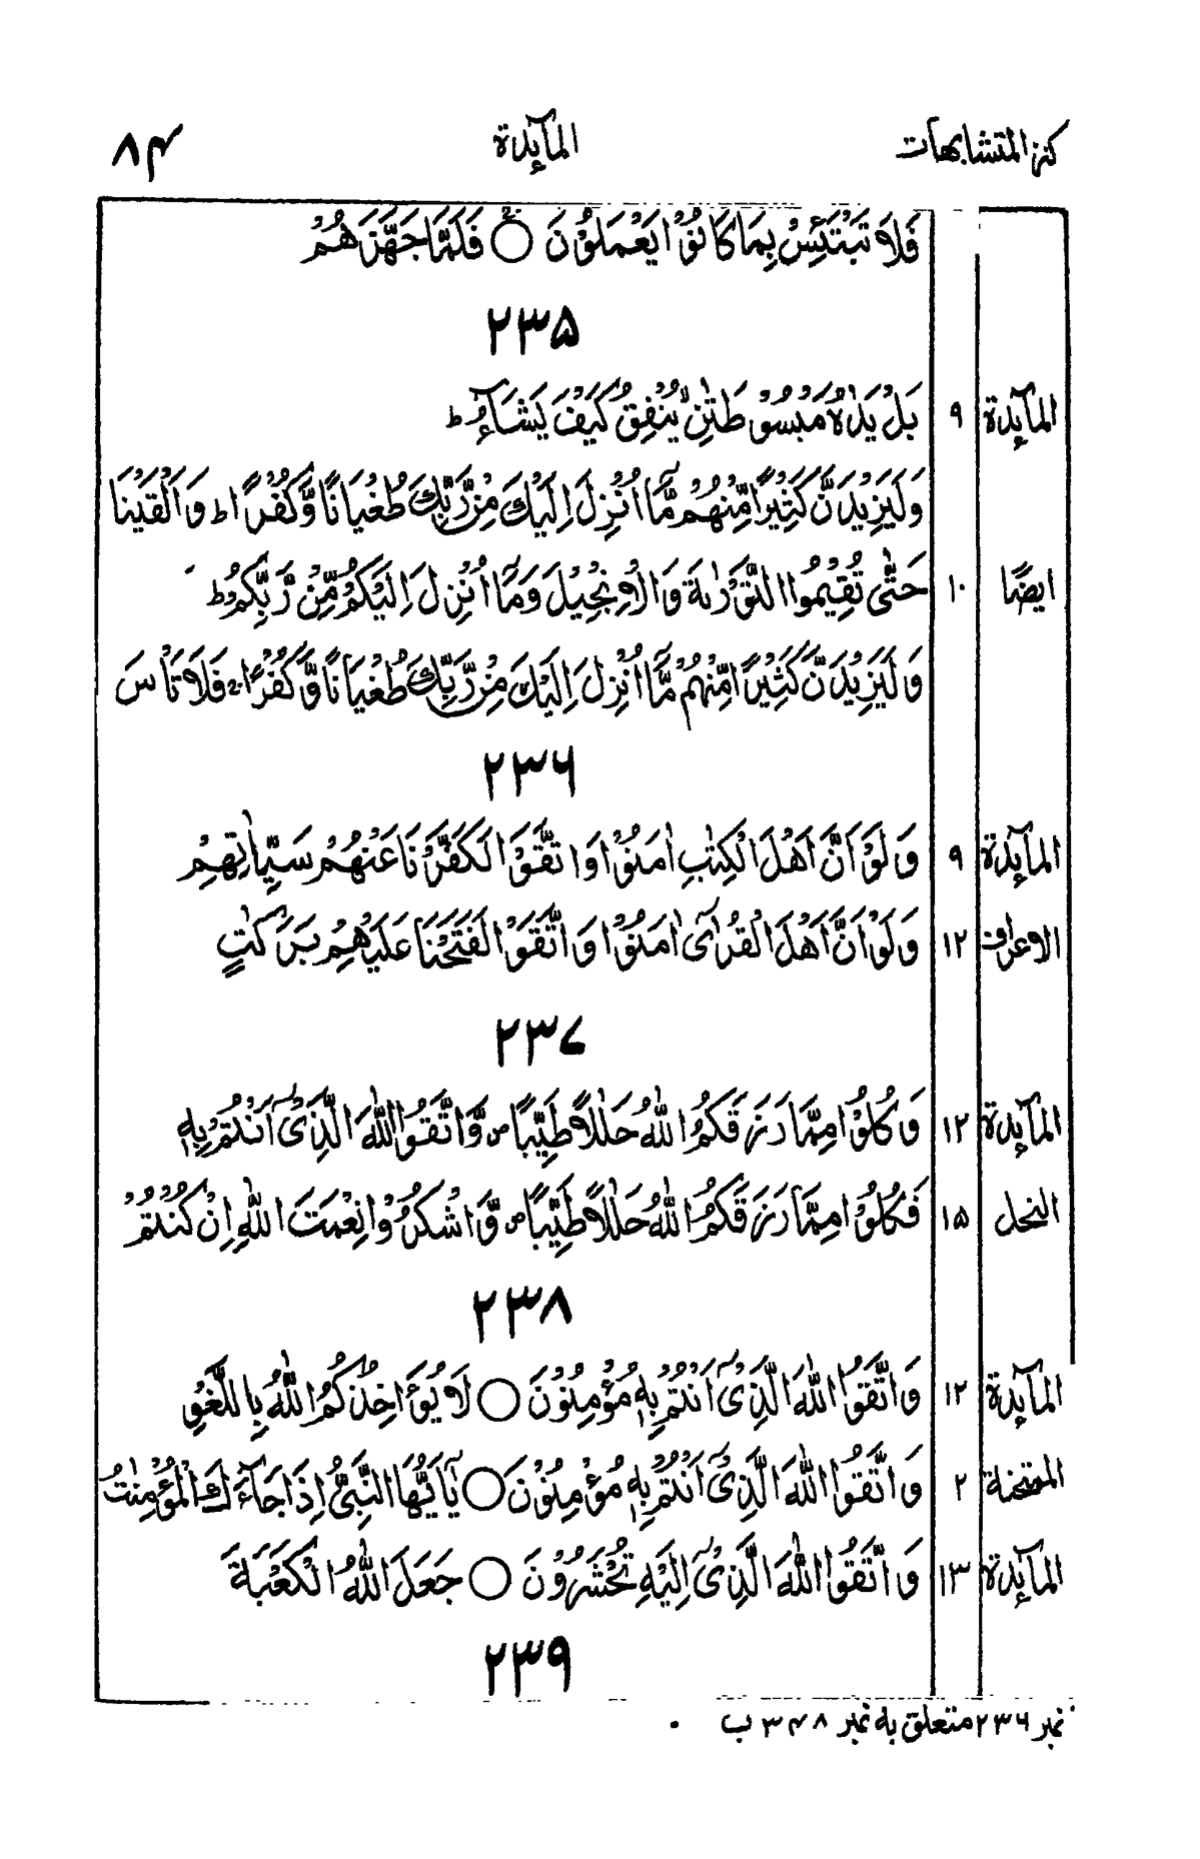 كنز المتشابهات المآئدة ٨۴
فَلَا تَبْتَئِسْ بِمَا كَانُوْا يَعْمَلُوْنَ ○ فَلَمَّا جَهَّزَهُمْ
٢٣۵
المآئدة ٩ بَلْ يَدٰهُ مَبْسُوْطَتٰنِ ۙ يُنْفِقُ كَيْفَ يَشَآءُ ؕ
وَلَيَزِيْدَنَّ كَثِيْرًا مِّنْهُمْ مَّآ اُنْزِلَ اِلَيْكَ مِنْ رَّبِّكَ طُغْيَانًا وَّكُفْرًا ؕ وَاَلْقَيْنَا
ايضًا ١٠ حَتّٰى تُقِيْمُوا التَّوْرٰىةَ وَالْاِنْجِيْلَ وَمَآ اُنْزِلَ اِلَيْكُمْ مِّنْ رَّبِّكُمْ ؕ
وَلَيَزِيْدَنَّ كَثِيْرًا مِّنْهُمْ مَّآ اُنْزِلَ اِلَيْكَ مِنْ رَّبِّكَ طُغْيَانًا وَّكُفْرًا ۚ فَلَا تَاْسَ
٢٣۶
المآئدة ٩ وَلَوْ اَنَّ اَهْلَ الْكِتٰبِ اٰمَنُوْا وَاتَّقَوْا لَكَفَّرْنَا عَنْهُمْ سَيِّاٰتِهِمْ
الاعراف ١٢ وَلَوْ اَنَّ اَهْلَ الْقُرٰٓى اٰمَنُوْا وَاتَّقَوْا لَفَتَحْنَا عَلَيْهِمْ بَرَكٰتٍ
٢٣٧
المآئدة ١٢ وَكُلُوْا مِمَّا رَزَقَكُمُ اللّٰهُ حَلٰلًا طَيِّبًا ص وَّاتَّقُوا اللّٰهَ الَّذِيْٓ اَنْتُمْ بِهٖ
النحل ١۵ فَكُلُوْا مِمَّا رَزَقَكُمُ اللّٰهُ حَلٰلًا طَيِّبًا ص وَّاشْكُرُوْا نِعْمَتَ اللّٰهِ اِنْ كُنْتُمْ
٢٣٨
المآئدة ١٢ وَاتَّقُوا اللّٰهَ الَّذِيْٓ اَنْتُمْ بِهٖ مُؤْمِنُوْنَ ○ لَا يُؤَاخِذُكُمُ اللّٰهُ بِاللَّغْوِ
الممتحنة ٢ وَاتَّقُوا اللّٰهَ الَّذِيْٓ اَنْتُمْ بِهٖ مُؤْمِنُوْنَ ○ يٰٓاَيُّهَا النَّبِيُّ اِذَا جَآءَكَ الْمُؤْمِنٰتُ
المآئدة ١٣ وَاتَّقُوا اللّٰهَ الَّذِيْٓ اِلَيْهِ تُحْشَرُوْنَ ○ جَعَلَ اللّٰهُ الْكَعْبَةَ
٢٣٩
نمبر ٢٣۶ متعلق به نمبر ٣۴٨ ب ۰